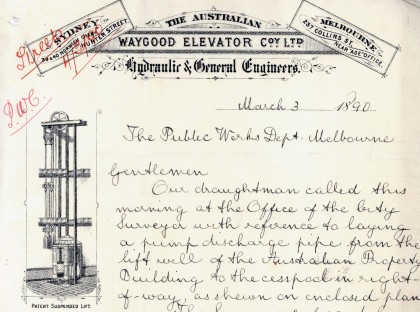 THE AUSTRALIAN
WAYGOOD ELEVATOR COY LTD
Hydraulic & General Engineers.
SYDNEY
HUNTER STREET.
MELBOURNE
COLLINS ST.
NEAR AGE OFFICE.
March 3 1890
The Public Works Dept. Melbourne
Gentlemen
Our draughtman called this
morning at the Office of the City
Surveyor with reference to laying
a pump discharge pipe from the
lift well of the Australian Property
Building to the cesspool in right
of-way, as shewn on enclosed plan
PATENT SUSPENDED LIFT.